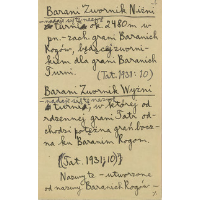 Barani Zwornik Niżni
nadaje się: nazwa
Turnia ok 2480m w
pn.-zach. grani Baranich
Rogów, będącej zworni-
kiem dla grani Baranich
Turni. (Tat. 1931:10)
Barani Zwornik Wyżni
nadaje się: nazwa
Turnia, w której od
rdzennej grani Tatr od-
chodzi potężna grań bocz-
na ku Baranim Rogom.
(Tat. 1931,10)
Nazwy te – utworzone
od nazwy Baranich Rogów –